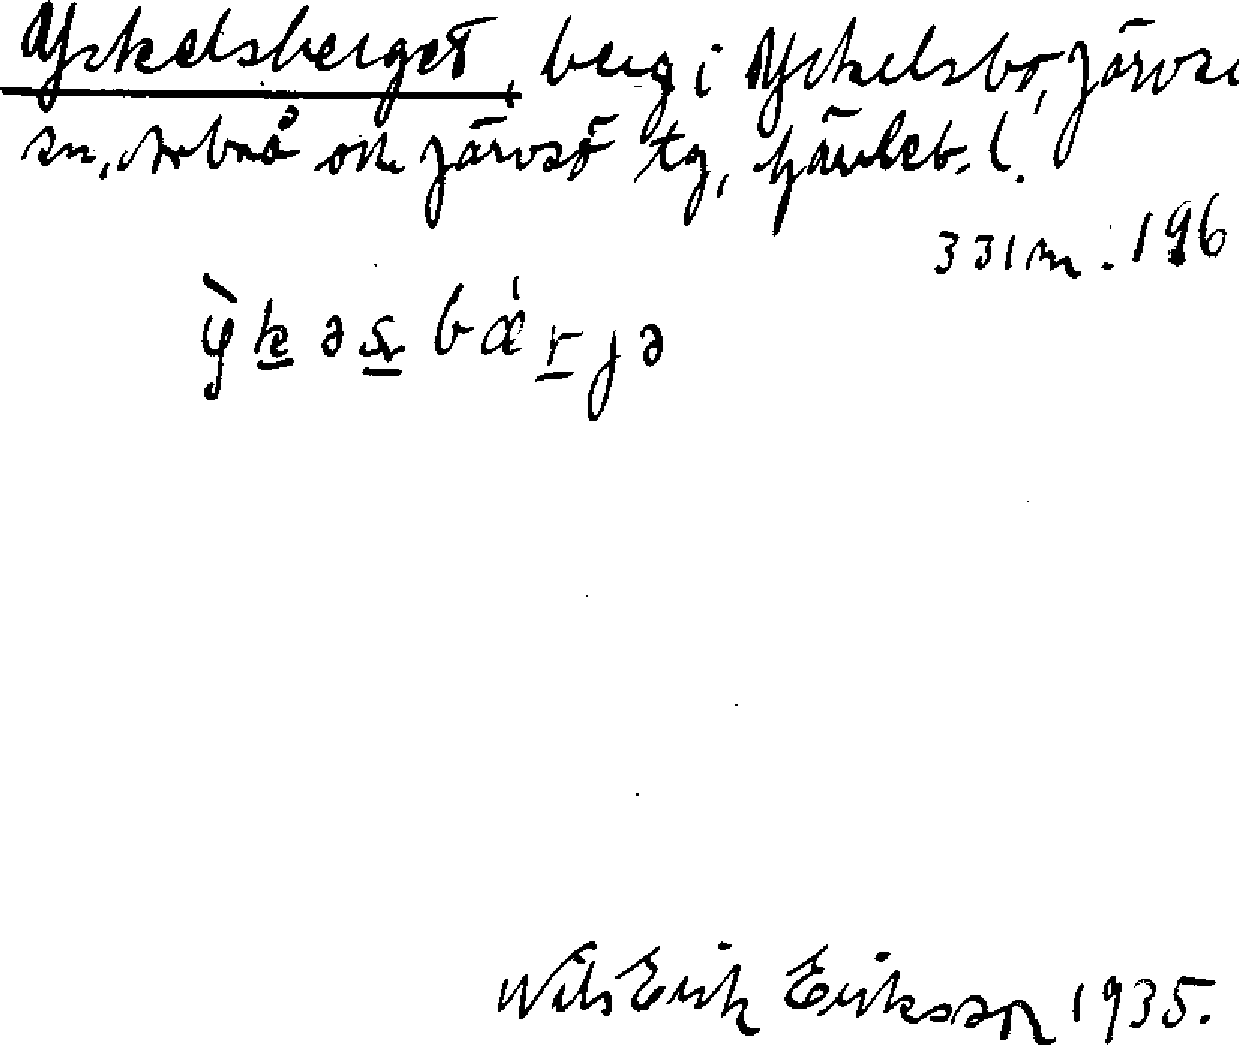 Yckelsberget, berg i Yckelsbo, Järvsö
sn, Arbrå och Järvsö tg, Gävleb. l.
331 m. 196
ỳk̲əs̲bǽr̲jə
Nils Erik Eriksson 1935.